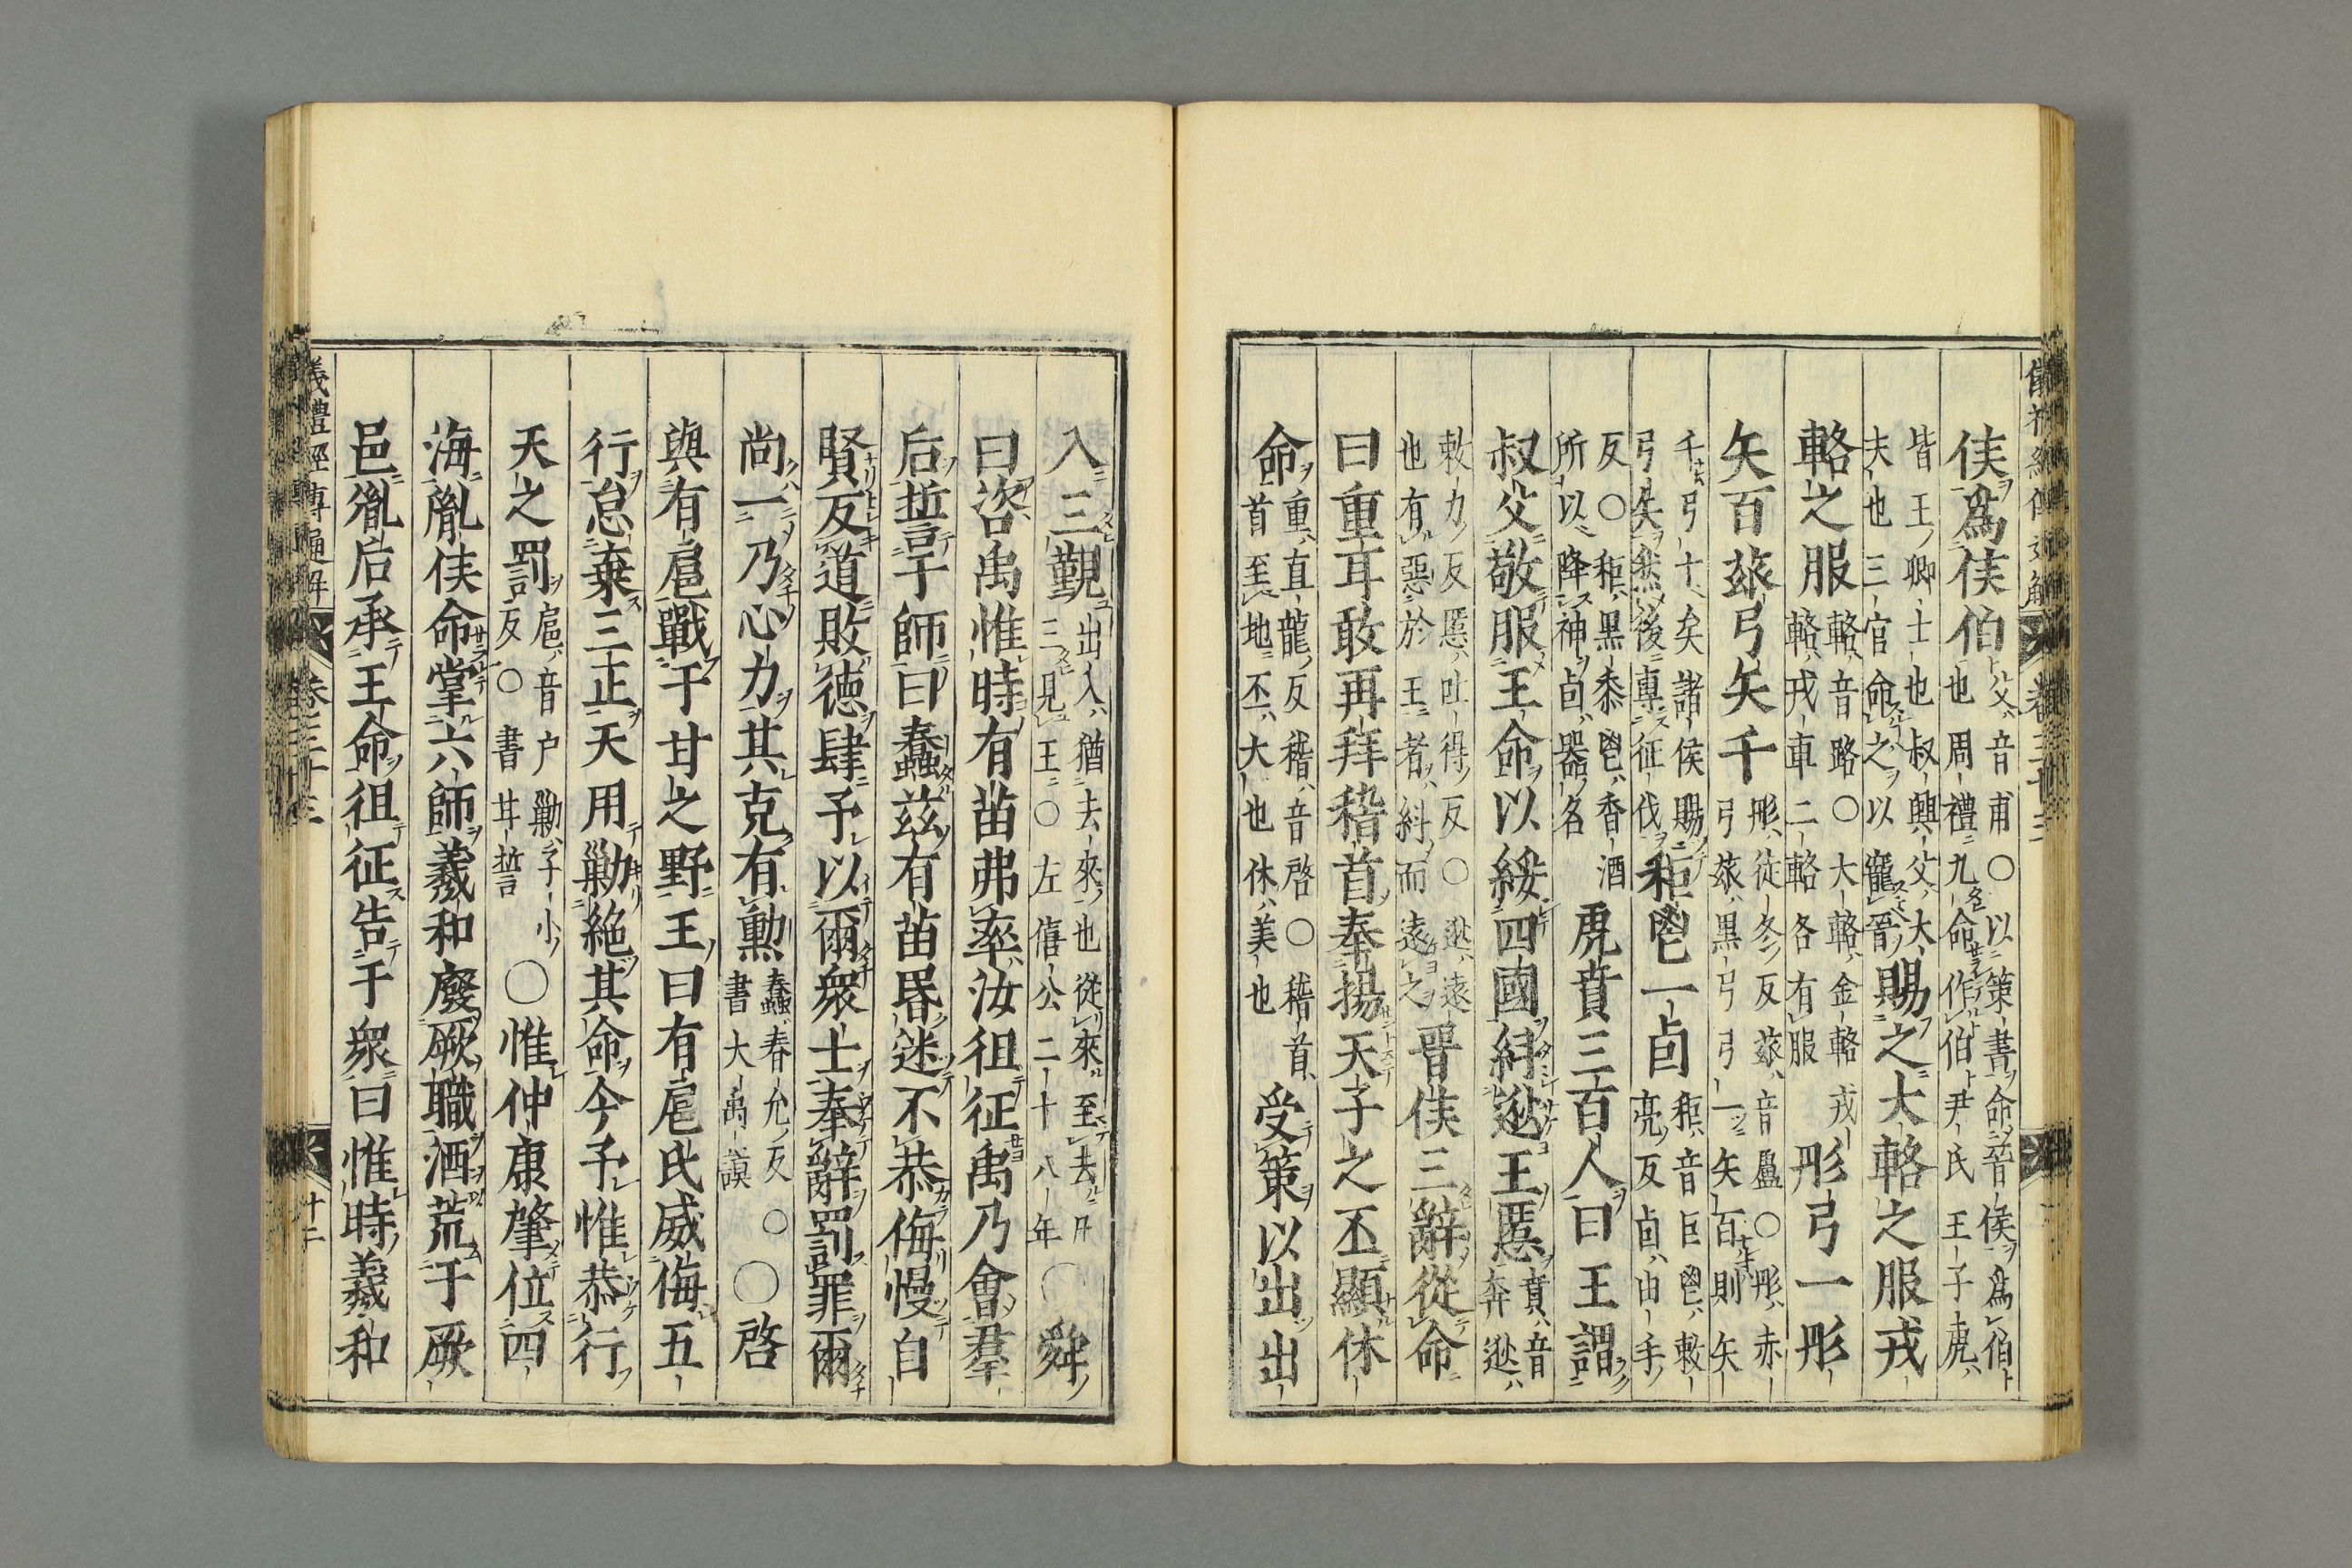 侯爲侯伯父音甫○以策書命晉侯爲伯也周禮九命作伯尹氏王子虎
皆王卿士也叔興父大夫也三官命之以寵晉賜之大輅之服戎
輅之服輅音路○大輅金輅戎輅戎車二輅各有服彤弓一彤
矢百玈弓矢千彤徒冬反玈音盧○彤赤弓玈黑弓弓一矢百則矢
千弓十矣諸侯賜弓矢然後專征伐秬鬯一卣秬音巨鬯敕亮反卣由手
反○秬黑黍鬯香酒所以降神卣器名虎賁三百人曰王謂
叔父敬服王命以綏四國糾逖王慝賁音奔逖
敕力反慝吐得反○逖遠也有惡於王者糾而遠之晉侯三辭從命
曰重耳敢再拜稽首奉揚天子之丕顯休
命重直龍反稽音啓○稽首首至地丕大也休美也受策以出出
入三覲出入猶去來也從來至去凡三見王○左僖公二十八年○舜
曰咨禹惟時有苗弗率汝徂征禹乃會羣
后誓于師曰蠢茲有苗昬迷不恭侮慢自
賢反道敗德肆予以爾衆士奉辭罰罪爾
尚一乃心力其克有勲蠢春允反○書大禹謨○啓
與有扈戰于甘之野王曰有扈氏威侮五
行怠棄三正天用勦絶其命今予惟恭行
天之罰扈音户勦子小反○書甘誓○惟仲康肇位四
海胤侯命掌六師羲和廢厥職酒荒于厥
邑胤后承王命徂征告于衆曰惟時羲和
儀禮經傳通解
卷三十三
十二